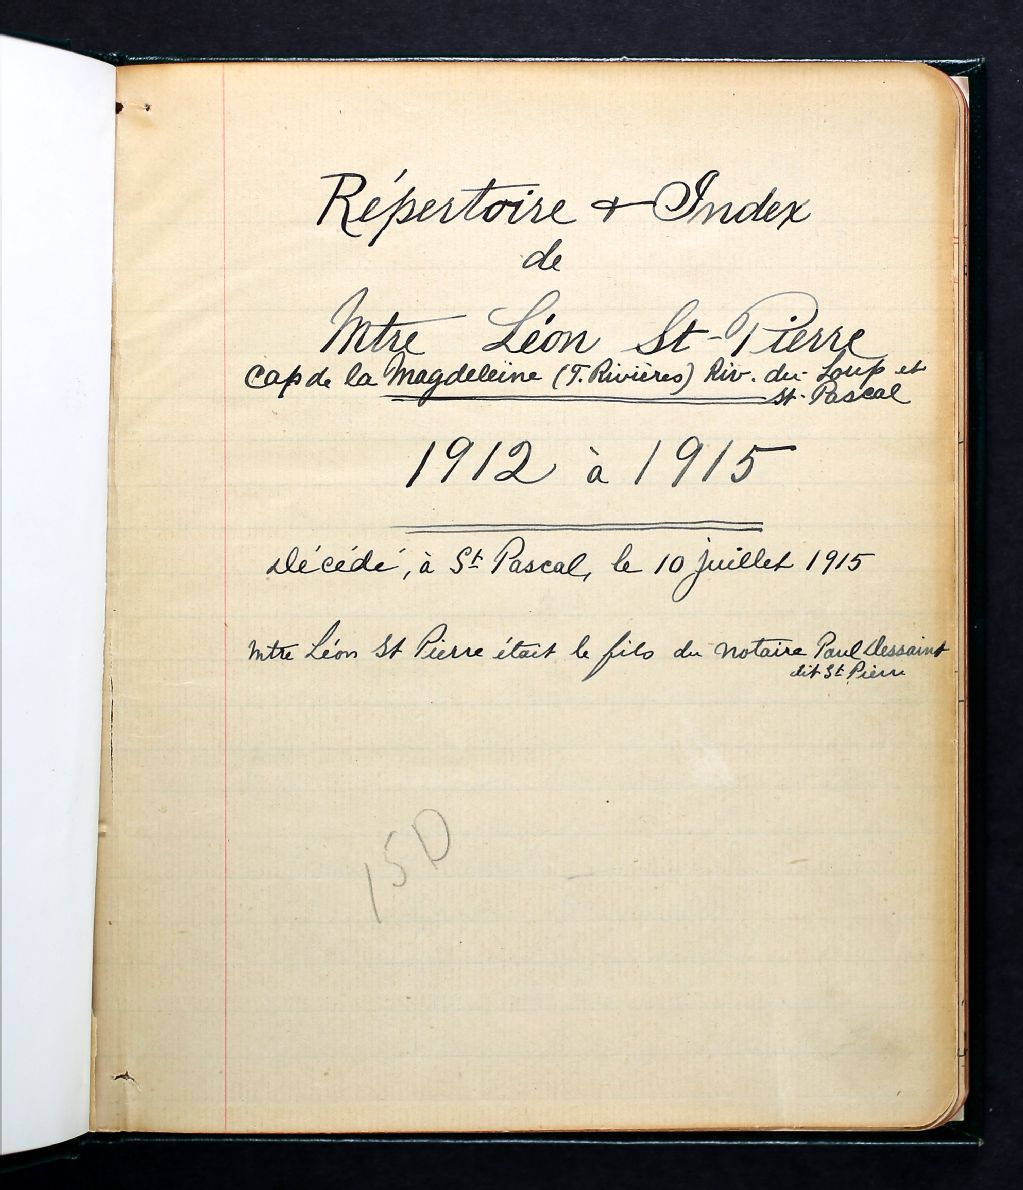 Répertoire & Index
de
Mtre Léon St-Pierre
Cap de la Magdeleine (T. Rivières) Riv. du- Loup et
St-Pascal
1912 à 1915
Décédé, à St Pascal, le 10 juillet 1915
Mtre Léon St Pierre était le fils du notaire Paul Dessaint
dit St Pierre
15D